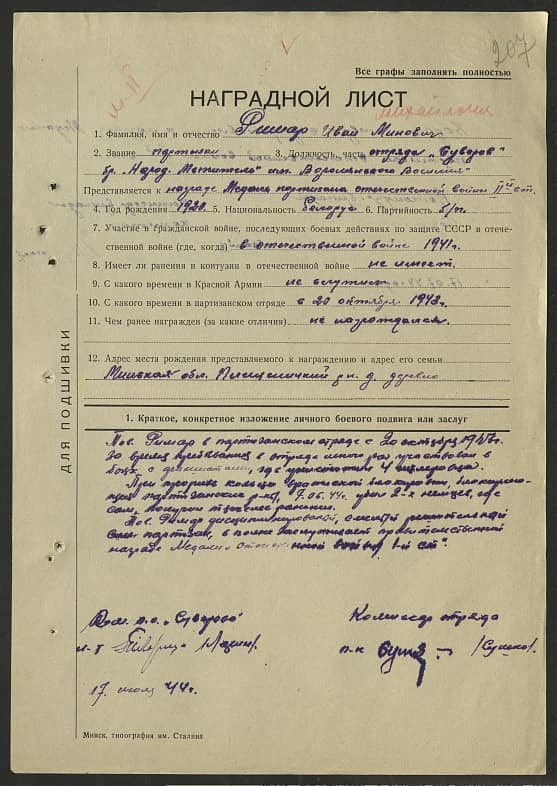 207
Все графы заполнять полностью
НАГРАДНОЙ ЛИСТ
1. Фамилия, имя и отчество Римар Иван Минович
2. Звание партизан 3. Должность, часть отряда „Суворов"
бр. „Народ. Мстители" им. Воронянского Василия
Представляется к награде Медаль партизана отечественной войны II й ст.
4. Год рождения 5. Национальность Белорус 6. Партийность б/п.
7. Участие в гражданской войне, последующих боевых действиях по защите СССР в отече-
ственной войне (где, когда) в отечественной войне 1941 г.
8. Имеет ли ранения и контузии в отечественной войне не имеет.
9. С какого времени в Красной Армии не служил
10. С какого времени в партизанском отряде с 20 октября 1943 г.
11. Чем ранее награжден (за какие отличия) не награждался.
12. Адрес места рождения представляемого к награждению и адрес его семьи
Минская обл. Плещеничский р-н. д.
ДЛЯ ПОДШИВКИ
1. Краткое, конкретное изложение личного боевого подвига или заслуг
Тов. Римар в партизанском отряде с 20 октября
За время пребывания в отряде много раз участвовал в
боях с где уничтожил 4 гитлеровца.
При прорыве кольца вражеской блокировки,
партизанские р-ны, 7.06.44 г. убил 2-х немцев, где
сам получил ранение.
Тов. Римар дисциплинированный, смелый решительный
партизан, вполне заслуживает правительственной
награды Медали Отечественной войны ст".
Ком. п.о. „Суворова" Комиссар отряда
л-т п-к
17 июля 44 г.
Минск, типография им. Сталина